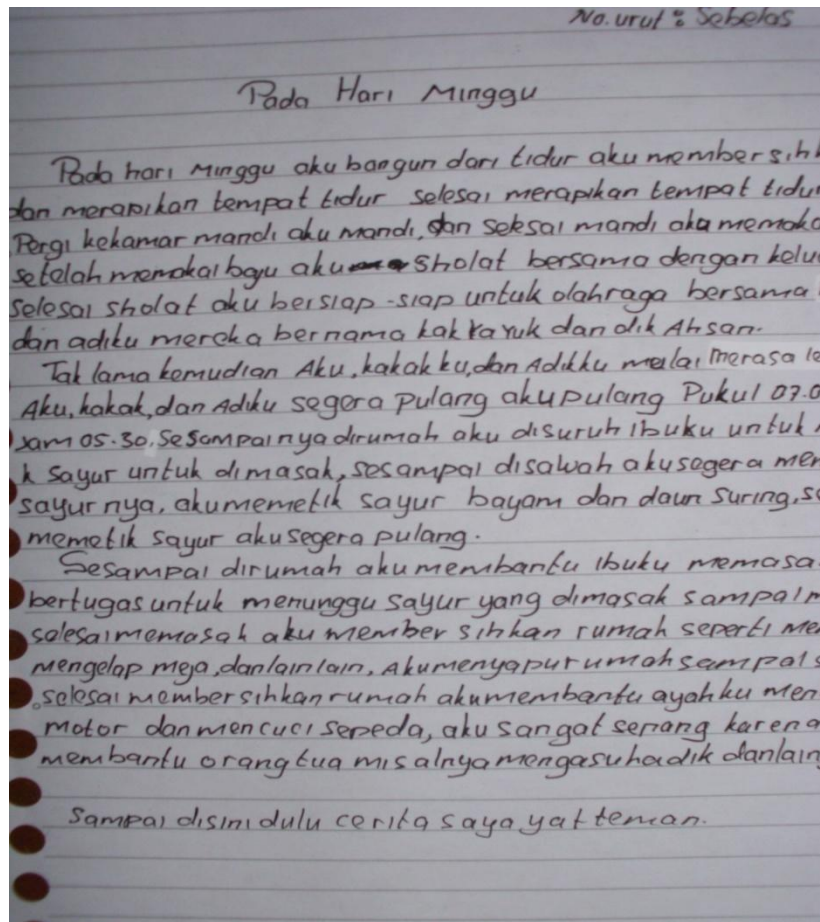 No. urut : Sebelas
Pada Hari Minggu
Pada hari Minggu aku bangun dari tidur aku membersihk
dan merapikan tempat tidur selesai merapikan tempat tidu
Pergi kekamar mandi aku mandi, dan selesai mandi aku memaka
setelah memakai baju aku sholat bersama dengan kelu
Selesai sholat aku bersiap-siap untuk olahraga bersama
dan adiku mereka bernama kak dan dik Ahsan.
Tak lama kemudian Aku, kakak ku, dan Adikku mulai merasa le
Aku, kakak, dan Adiku segera pulang aku pulang Pukul 07.0
jam 05.30. Sesampainya dirumah aku disuruh ibuku untuk
k sayur untuk dimasak, sesampai disawah aku segera me
sayurnya, aku memetik sayur bayam dan daun suring, s
memetik sayur aku segera pulang.
Sesampai dirumah aku membantu ibuku memasa
bertugas untuk menunggu sayur yang dimasak sampai m
selesai memasak aku membersihkan rumah seperti me
mengelap meja, dan lain lain, Aku menyapu rumah sampai s
selesai membersihkan rumah aku membantu ayahku men
motor dan mencuci sepeda, aku sangat senang karena
membantu orang tua misalnya mengasuh adik dan lain
Sampai disini dulu cerita saya ya teman.